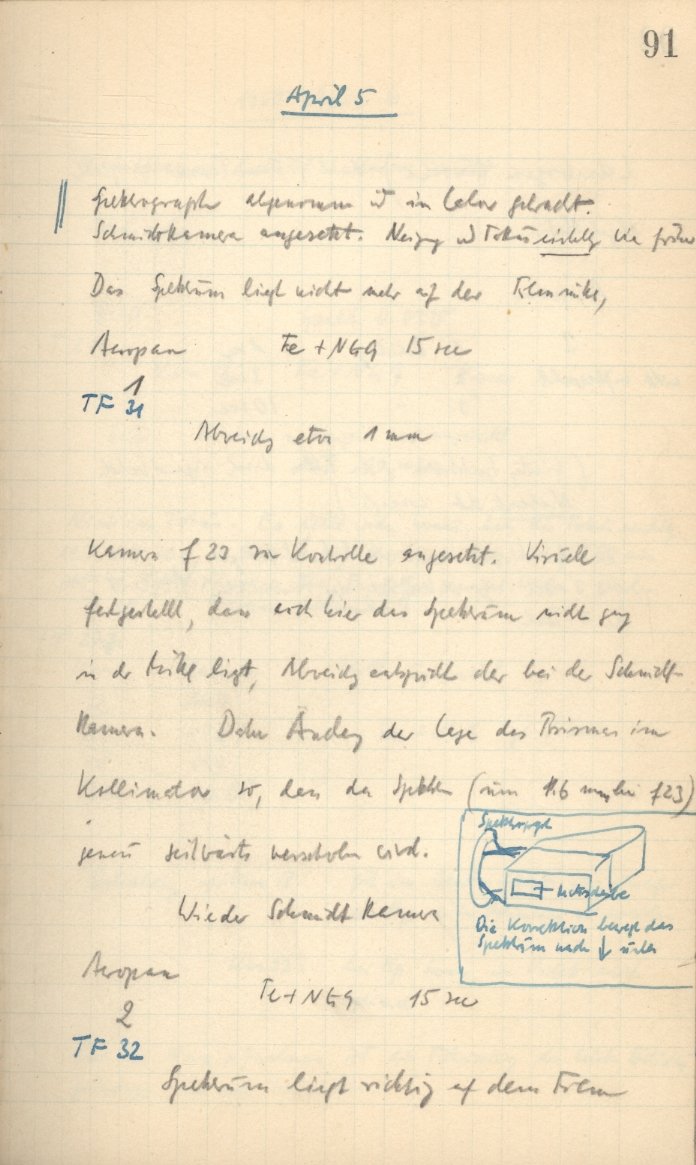 91
April 5
Spektrograph abgenommen und in Labor gebracht.
Schmidtkamera angesetzt. Neigung und Fokus wie früher
Das Spektrum liegt nicht mehr auf der Filmmitte,
Aeropan Fe + NGG 15 sec
1
TF 31
Abweichg etwa 1 mm
Kamera f 23 zur Kontrolle angesetzt. Visuell
festgestellt, dass auch hier das Spektrum nicht ganz
in der Mitte liegt, Abweichg entspricht der bei der Schmidt-
Kamera. Daher Änderg der Lage des Prismas im
Kollimator so, dass das Spektrum (um 1.6 mm bei f23)
genau seitwärts verschoben wird.
Spektrograph
Mattscheibe
Die Korrektion bewegt das
Spektrum nach ↓ unten
Wieder Schmidt Kamera
Aeropan
Fe + NGG 15 sec
2
TF 32
Spektrum liegt richtig auf dem Film